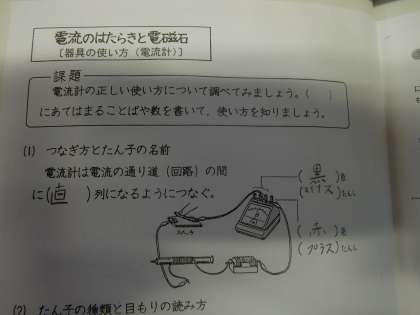 電流のはたらきと電磁石
[器具の使い方(電流計)]
課題
電流計の正しい使い方について調べてみましょう。( )
にあてはまることばや数を書いて、使い方を知りましょう。
(1) つなぎ方とたん子の名前
電流計は電流の通り道(回路)の間
に(直)列になるようにつなぐ。
(黒)色
(マイナス)たんし
(赤)色
(プラス)たんし
(2) たん子の種類と目もりの読み方